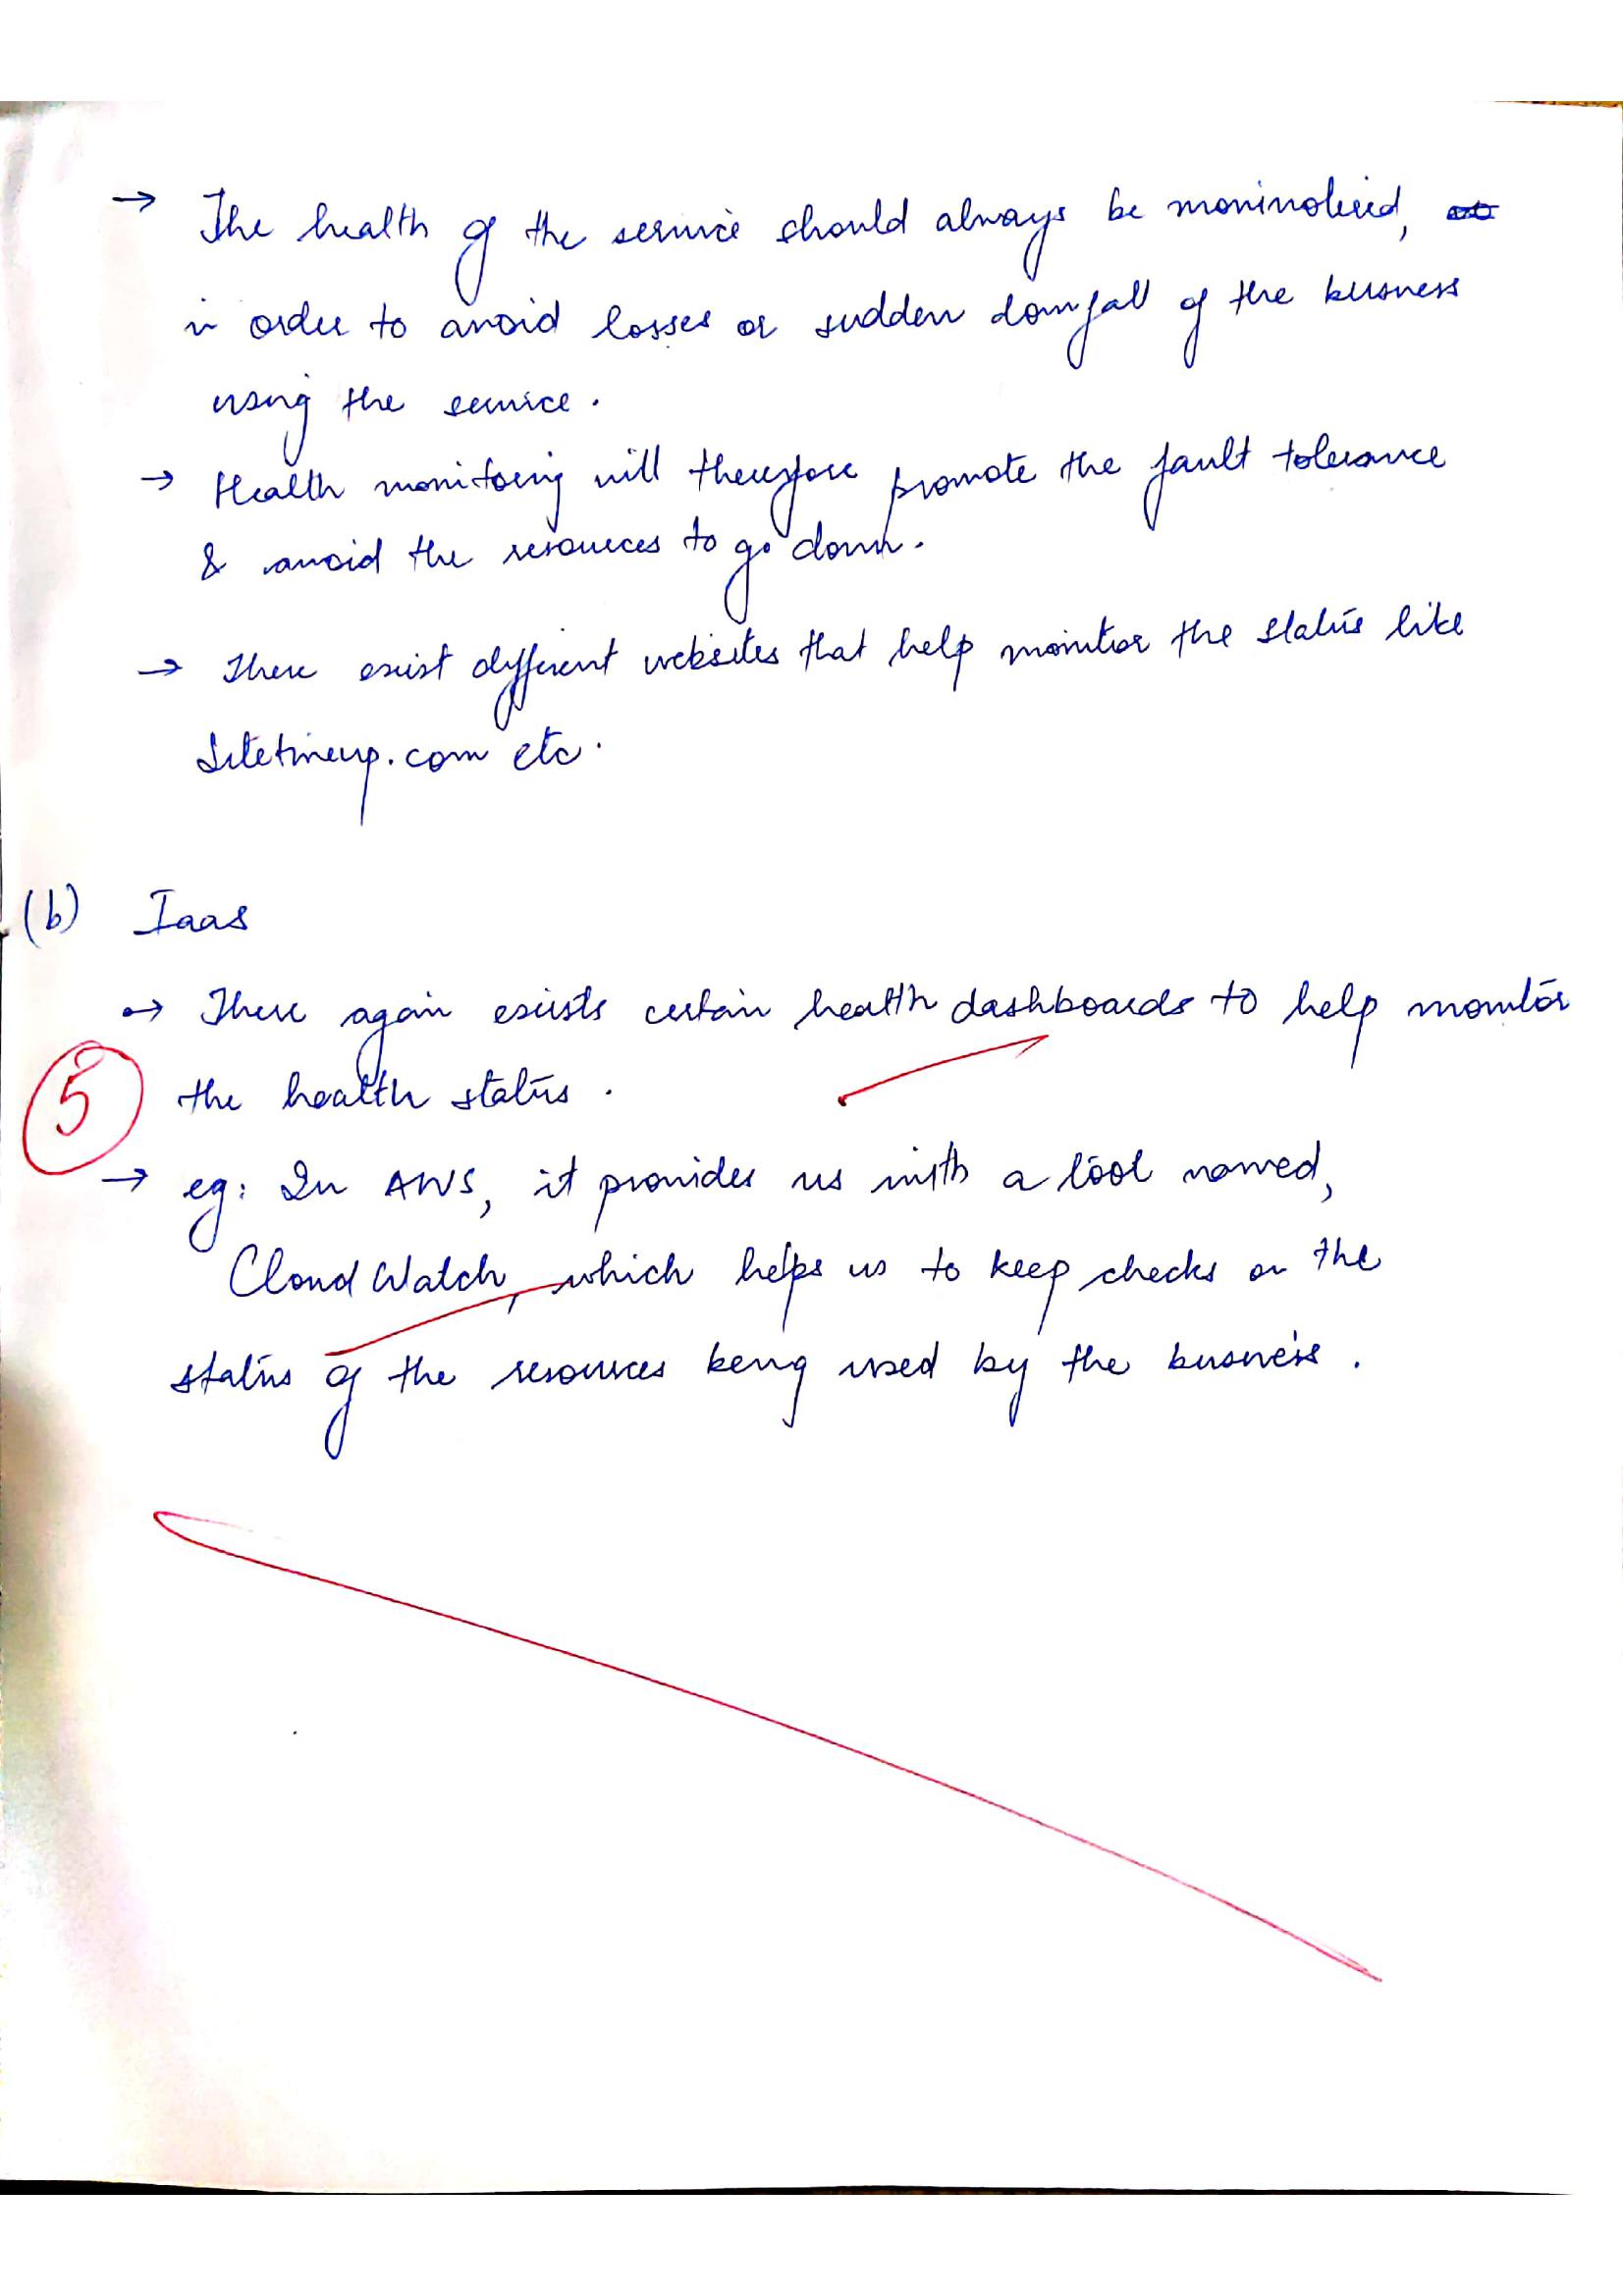 → The health of the service should always be moninotered,
in order to avoid losses or sudden downfall of the business
using the service.
→ Health monitoring will therefore promote the fault tolerance
& avoid the resources to go down.
→ There exist different websites that help monitor the status like
Sitetimeup.com etc.
(b) Iaas
→ There again exists certain health dashboards to help monitor
5 the health status.
→ eg: In AWS, it provides us with a tool named,
Cloud Watch, which helps us to keep checks on the
status of the resources being used by the business.